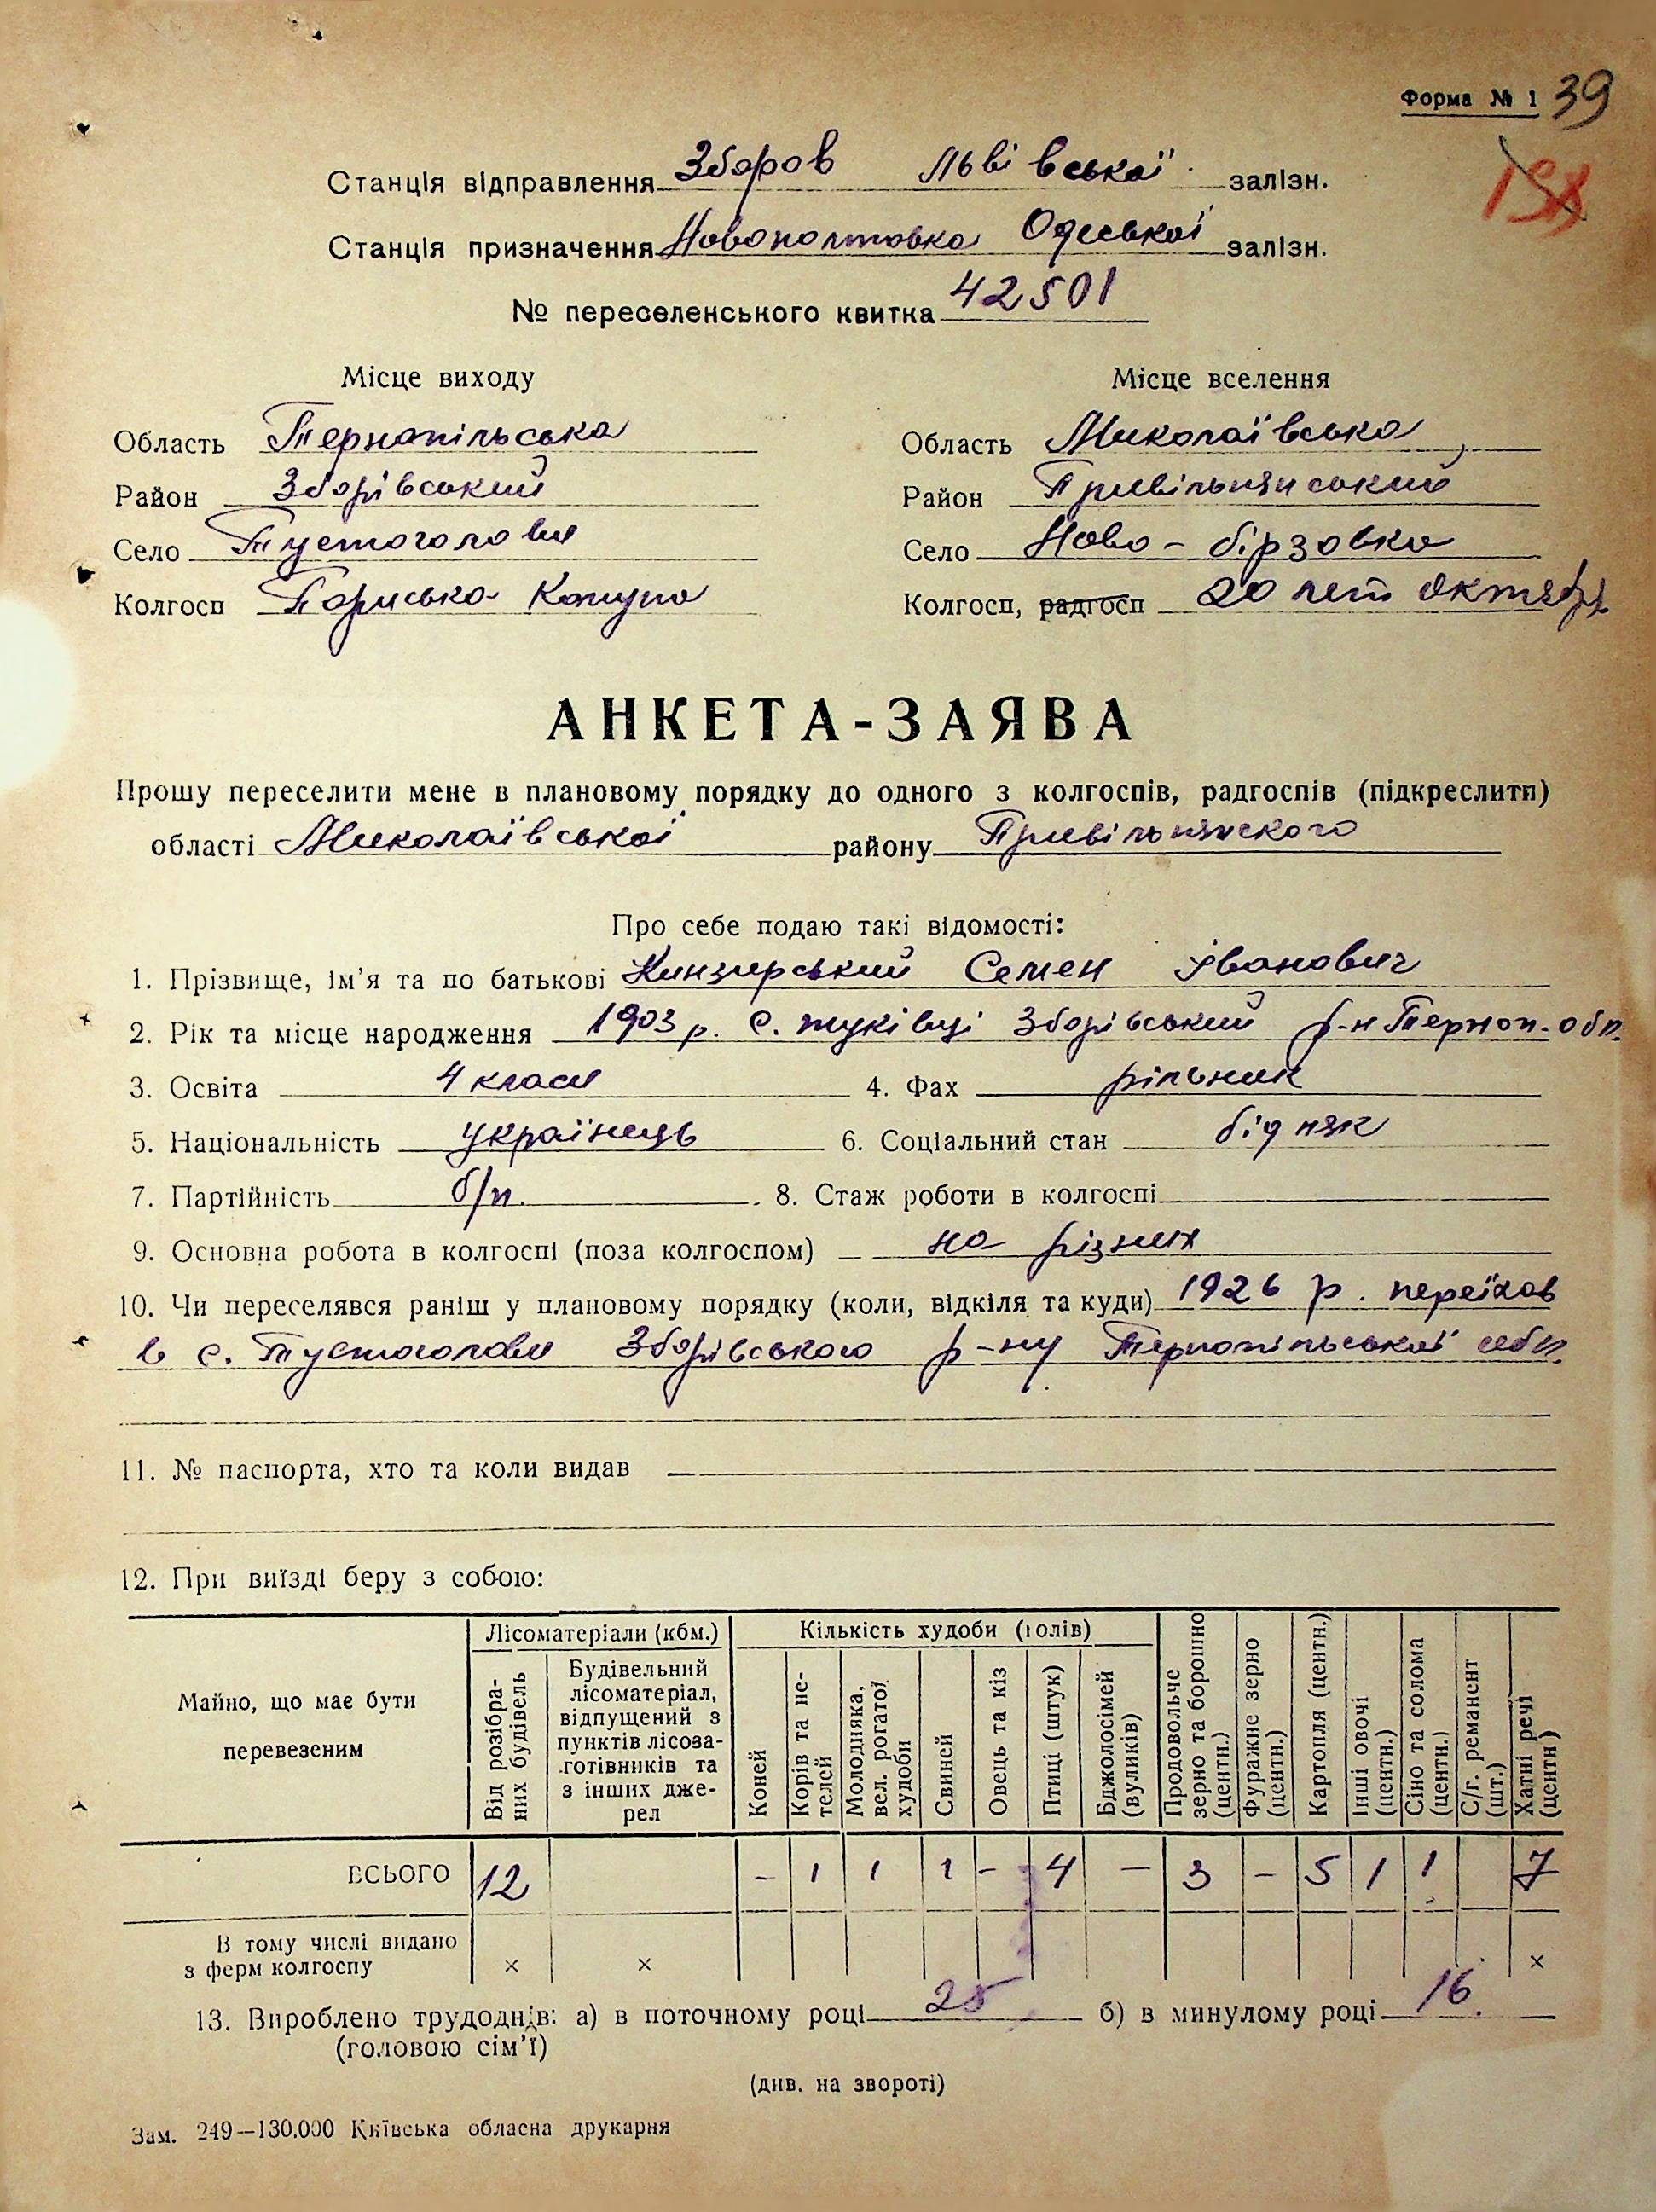 Форма № 1 39
158
Станція відправлення Зборов Львівської залізн.
Станція призначення Новополтовка Одеської залізн.
№ переселенського квитка 42501
Місце виходу Місце вселення
Область Тернопільська Область Миколаївська
Район Зборівський Район Привільнянський
Село Тустоголови Село Ново-бірзовка
Колгосп Париська Комуна Колгосп, радгосп 20 лет Октября
АНКЕТА-ЗАЯВА
Прошу переселити мене в плановому порядку до одного з колгоспів, радгоспів (підкреслити)
області Миколаївської району Привільнянского
Про себе подаю такі відомості:
1. Прізвище, ім'я та по батькові Кинзирський Семен Іванович
2. Рік та місце народження 1903 р. с. жуківці Зборівський р-н Терноп. обл.
3. Освіта 4 класи 4. Фах рільник
5. Національність українець 6. Соціальний стан бідняк
7. Партійність б/п. 8. Стаж роботи в колгоспі
9. Основна робота в колгоспі (поза колгоспом) на різних
10. Чи переселявся раніш у плановому порядку (коли, відкіля та куди) 1926 р. переїхав
в с. Тустоголови Зборівського р-ну Тернопільської обл.
11. № паспорта, хто та коли видав
12. При виїзді беру з собою:
Майно, що має бути перевезеним
Лісоматеріали (кбм.)
Від розібраних будівель
Будівельний
лісоматеріал,
відпущений з
пунктів лісоза-
готівників та
з інших дже-
рел
Кількість худоби (голів)
Коней
Корів та не-
телей
Молодняка,
вел. рогатої
худоби
Свиней
Овець та кіз
Птиці (штук)
Бджолосімей
(вуликів)
Продовольче
зерно та борошно
(центн.)
Фуражне зерно
(центн.)
Картопля (центн.)
Інші овочі
(центн.)
Сіно та солома
(центн.)
С/г. реманент
(шт.)
Хатні речі
(центн)
ВСЬОГО 12 - 1 1 1 - 4 — 3 - 5 1 1 7
В тому числі видано
з ферм колгоспу × × ×
13. Вироблено трудоднів: а) в поточному році 25 б) в минулому році 16.
(головою сім'ї)
(див. на звороті)
Зам. 249—130.000 Київська обласна друкарня